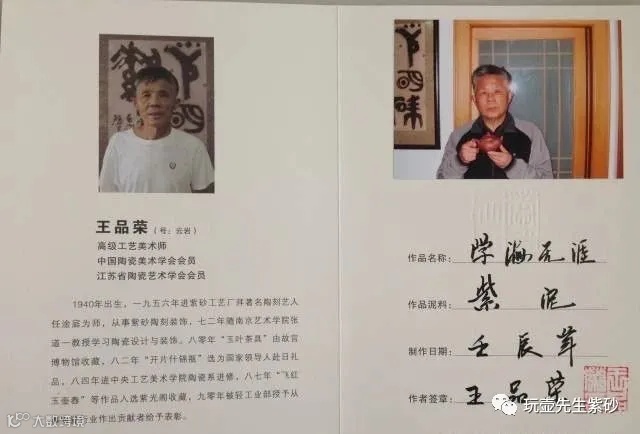 王品荣（号：云岩）
高级工艺美术师
中国陶瓷美术学会会员
江苏省陶瓷艺术学会会员
1940年出生，一九五六年进紫砂工艺厂拜著名陶刻艺人
任淦庭为师，从事紫砂陶刻装饰，七二年随南京艺术学院张
道一教授学习陶瓷设计与装饰。八零年“玉叶茶具”由故宫
博物馆收藏，八二年“开片什锦瓶”选为国家领导人赴日礼
品，八四年进中央工艺美术学院陶瓷系进修，八七年“飞红
玉奎春”等作品入选紫光阁收藏，九零年被轻工业部授予从
行业作出贡献者给予表彰。
作品名称：学海无涯
作品泥料：紫泥
制作日期：壬辰年
作者签章：王品荣
大数跨境
玩壶先生紫砂